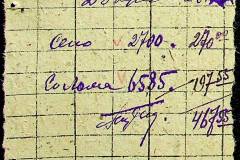 Сено 2700. 270⁰⁰
Солома 6585. 197⁵⁵
467⁵⁵